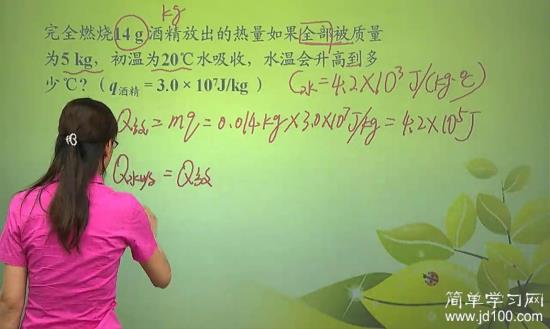 kg
完全燃烧14 g酒精放出的热量如果全部被质量
为5 kg，初温为20℃水吸收，水温会升高到多
少℃？（q酒精 = 3.0 × 10⁷J/kg）
C水=4.2×10³J/(kg·℃)
Q放=mq=0.014kg×3.0×10⁷J/kg=4.2×10⁵J
Q水吸=Q放
简单学习网
www.jd100.com